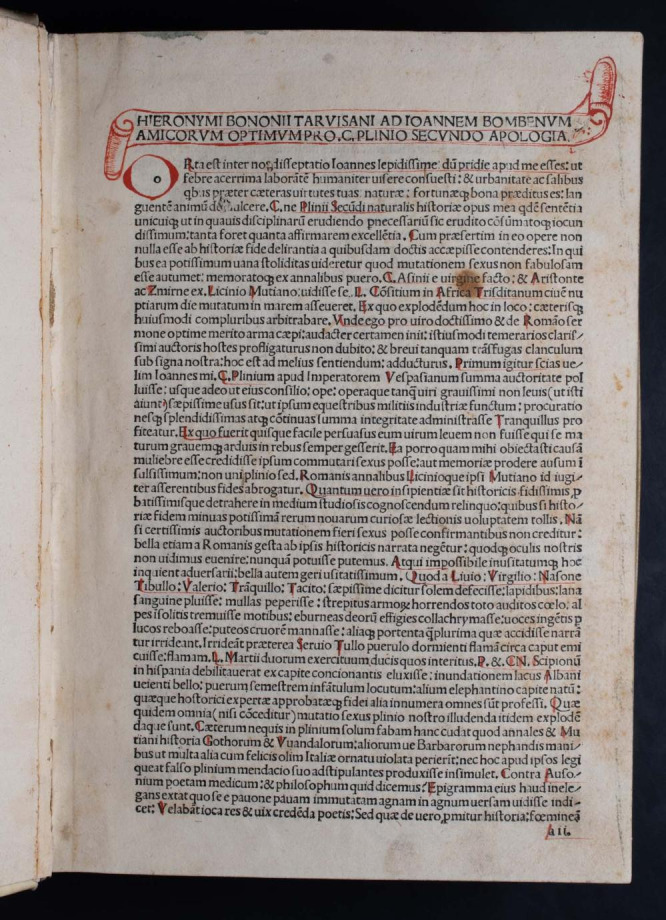 HIERONYMI BONONII TARVISANI AD IOANNEM BOMBENVM
AMICORVM OPTIMVM PRO.C.PLINIO SECVNDO APOLOGIA.
o Rta est inter nos disseptatio Ioannes lepidissime: dũ pridie apud me esses: ut
febre acerrima laborãtẽ humaniter uisere consuesti: & urbanitate ac salibus
qbus præter cæteras uirtutes tuas naturæ: fortunæqꝫ bona præditus es: lan
guentẽ animũ dulcere. C. ne Plinii Secũdi naturalis historiæ opus mea qdẽ sentẽtia
unicuiqꝫ ut in quauis disciplinarũ erudiendo pnecessariũ sic erudito cõsũmatoqꝫ iocun
dissimum: tanta foret quanta affirmarem excellẽtia. Cum præsertim in eo opere non
nulla esse ab historiæ fide delirantia a quibusdam doctis accæpisse contenderes: In qui
bus ea potissimum uana stoliditas uideretur quod mutationem sexus non fabulosam
esse autumet: memoratoqꝫ ex annalibus puero. C. Asinii e uirgine facto: & Aristonte
ac Zmirne ex Licinio Mutiano: uidisse se. L. Cõsitium in Africa Trisditanum ciuẽ nu
ptiarum die mutatum in marem asseueret. Ex quo explodẽdum hoc in loco: cæterisqꝫ
huiusmodi compluribus arbitrabare. Vnde ego pro uiro doctissimo & de Romão ser
mone optime merito arma cæpi: audacter certamen init: istiusmodi temerarios claris/
simi auctoris hostes profligaturus non dubito: & breui tanquam trãsfugas clanculum
sub signa nostra: hoc est ad melius sentiendum: adducturus. Primum igitur scias ue/
lim Ioannes mi. C. Plinium apud Imperatorem Vespasianum summa auctoritate pol
luisse: usque adeo ut eius consilio: ope: operaque tanq̃ uiri grauissimi non leuis (ut isti
aiunt) sæpissime usus sit: ut ipsum equestribus militiis industriæ functum: procuratio
nesqꝫ splendidissimas atqꝫ cõtinuas summa integritate administrasse Tranquillus pro
fiteatur. Ex quo fuerit quisque facile persuasus eum uirum leuem non fuisse qui se ma
turum grauemqꝫ arduis in rebus semper gesserit. Ea porro quam mihi obiectasti causã
muliebre esse credidisse ipsum commutari sexus posse: aut memoriæ prodere ausum ĩ
fulsissimum: non uni plinio sed. Romanis annalibus Licinioque ipsi Mutiano id iugi/
ter asserentibus fides abrogatur. Quantum uero insipientiæ sit historicis fidissimis p
batissimisque detrahere in medium studiosis cognoscendum relinquo: quibus si histo/
riæ fidem minuas potissimã rerum nouarum curiosæ lectionis uoluptatem tollis. Nã
si certissimis auctoribus mutationem fieri sexus posse confirmantibus non creditur:
bella etiam a Romanis gesta ab ipsis historicis narrata negẽtur: quodqꝫ oculis nostris
non uidimus euenire: nunquã potuisse putemus. Atqui impossibile inusitatumqꝫ hoc
inquient aduersarii: bella autem geri usitatissimum. Quod a Liuio: Virgilio: Nasone
Tibullo: Valerio: Trãquillo: Tacito: sæpissime dicitur solem defecisse: lapidibus: lana
sanguine pluisse: mullas peperisse: strepitus armoꝝ horrendos toto auditos cœlo. al
pes isolitis tremuisse motibus: eburneas deorũ effigies collachrymasse: uoces ingẽtis p
lucos reboasse: puteos cruorẽ mannasse: aliaqꝫ portenta q̃plurima quæ accidisse narrã
tur irrideant. Irrideãt præterea Seruio Tullo puerulo dormienti flamã circa caput emi
cuisse: flamam. L. Martii duorum exercituum ducis quos interitus. P. & CN. Scipionũ
in hispania debilitauerat ex capite concionantis eluxisse: inundationem lacus Albani
ueienti bello: puerum semestrem infãtulum locutum: alium elephantino capite natũ:
quæque historici expertæ approbatæqꝫ fidei alia innumera omnes sũt professi. Quæ
quidem omnia (nisi cõceditur) mutatio sexus plinio nostro illudenda itidem explodẽ
daque sunt. Cæterum nequis in plinium solum fabam hanc cudat quod annales & Mu
tiani historia Gothorum & Vuandalorum: aliorum ue Barbarorum nephandis mani/
bus ut multa alia cum felicis olim Italiæ ornatu uiolata perierit: nec hoc apud ipsos legi
queat falso plinium mendacio suo adstipulantes produxisse insimulet. Contra Auso/
nium poetam medicum: & philosophum quid dicemus: Epigramma eius haud inele/
gans extat quo se e pauone pauam immutatam agnam in agnum uersam uidisse indi/
cet: Velabãt ioca res & uix credẽda poetis: Sed quæ de uero pmitur historia: fœmineã
aii.